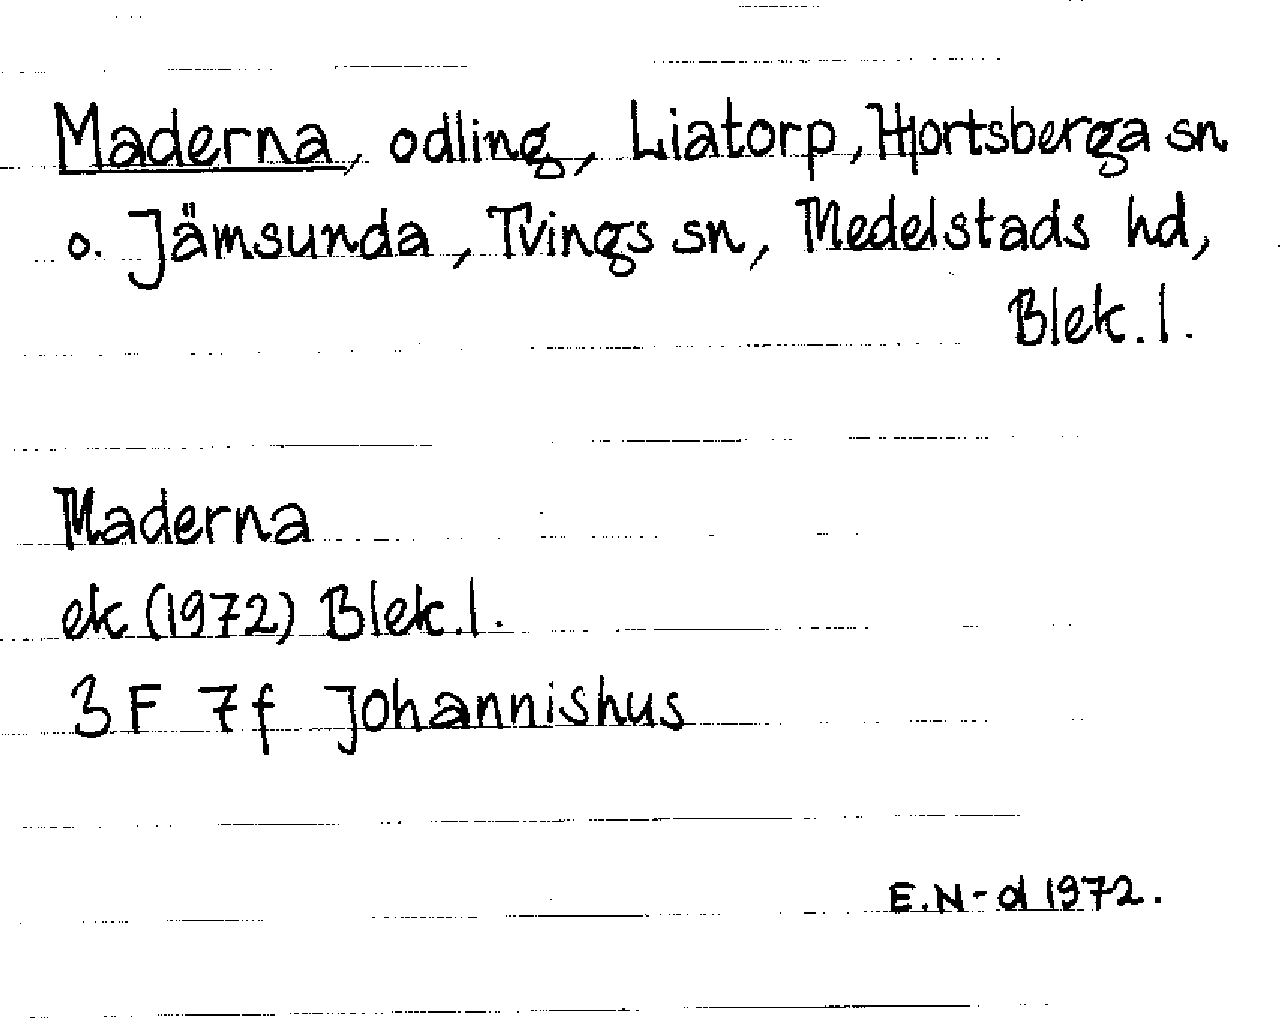 Maderna, odling, Liatorp, Hjortsberga sn
o. Jämsunda, Tvings sn, Medelstads hd,
Blek. l.
Maderna
ek (1972) Blek. l.
3 F 7 f Johannishus
E.N-d 1972.